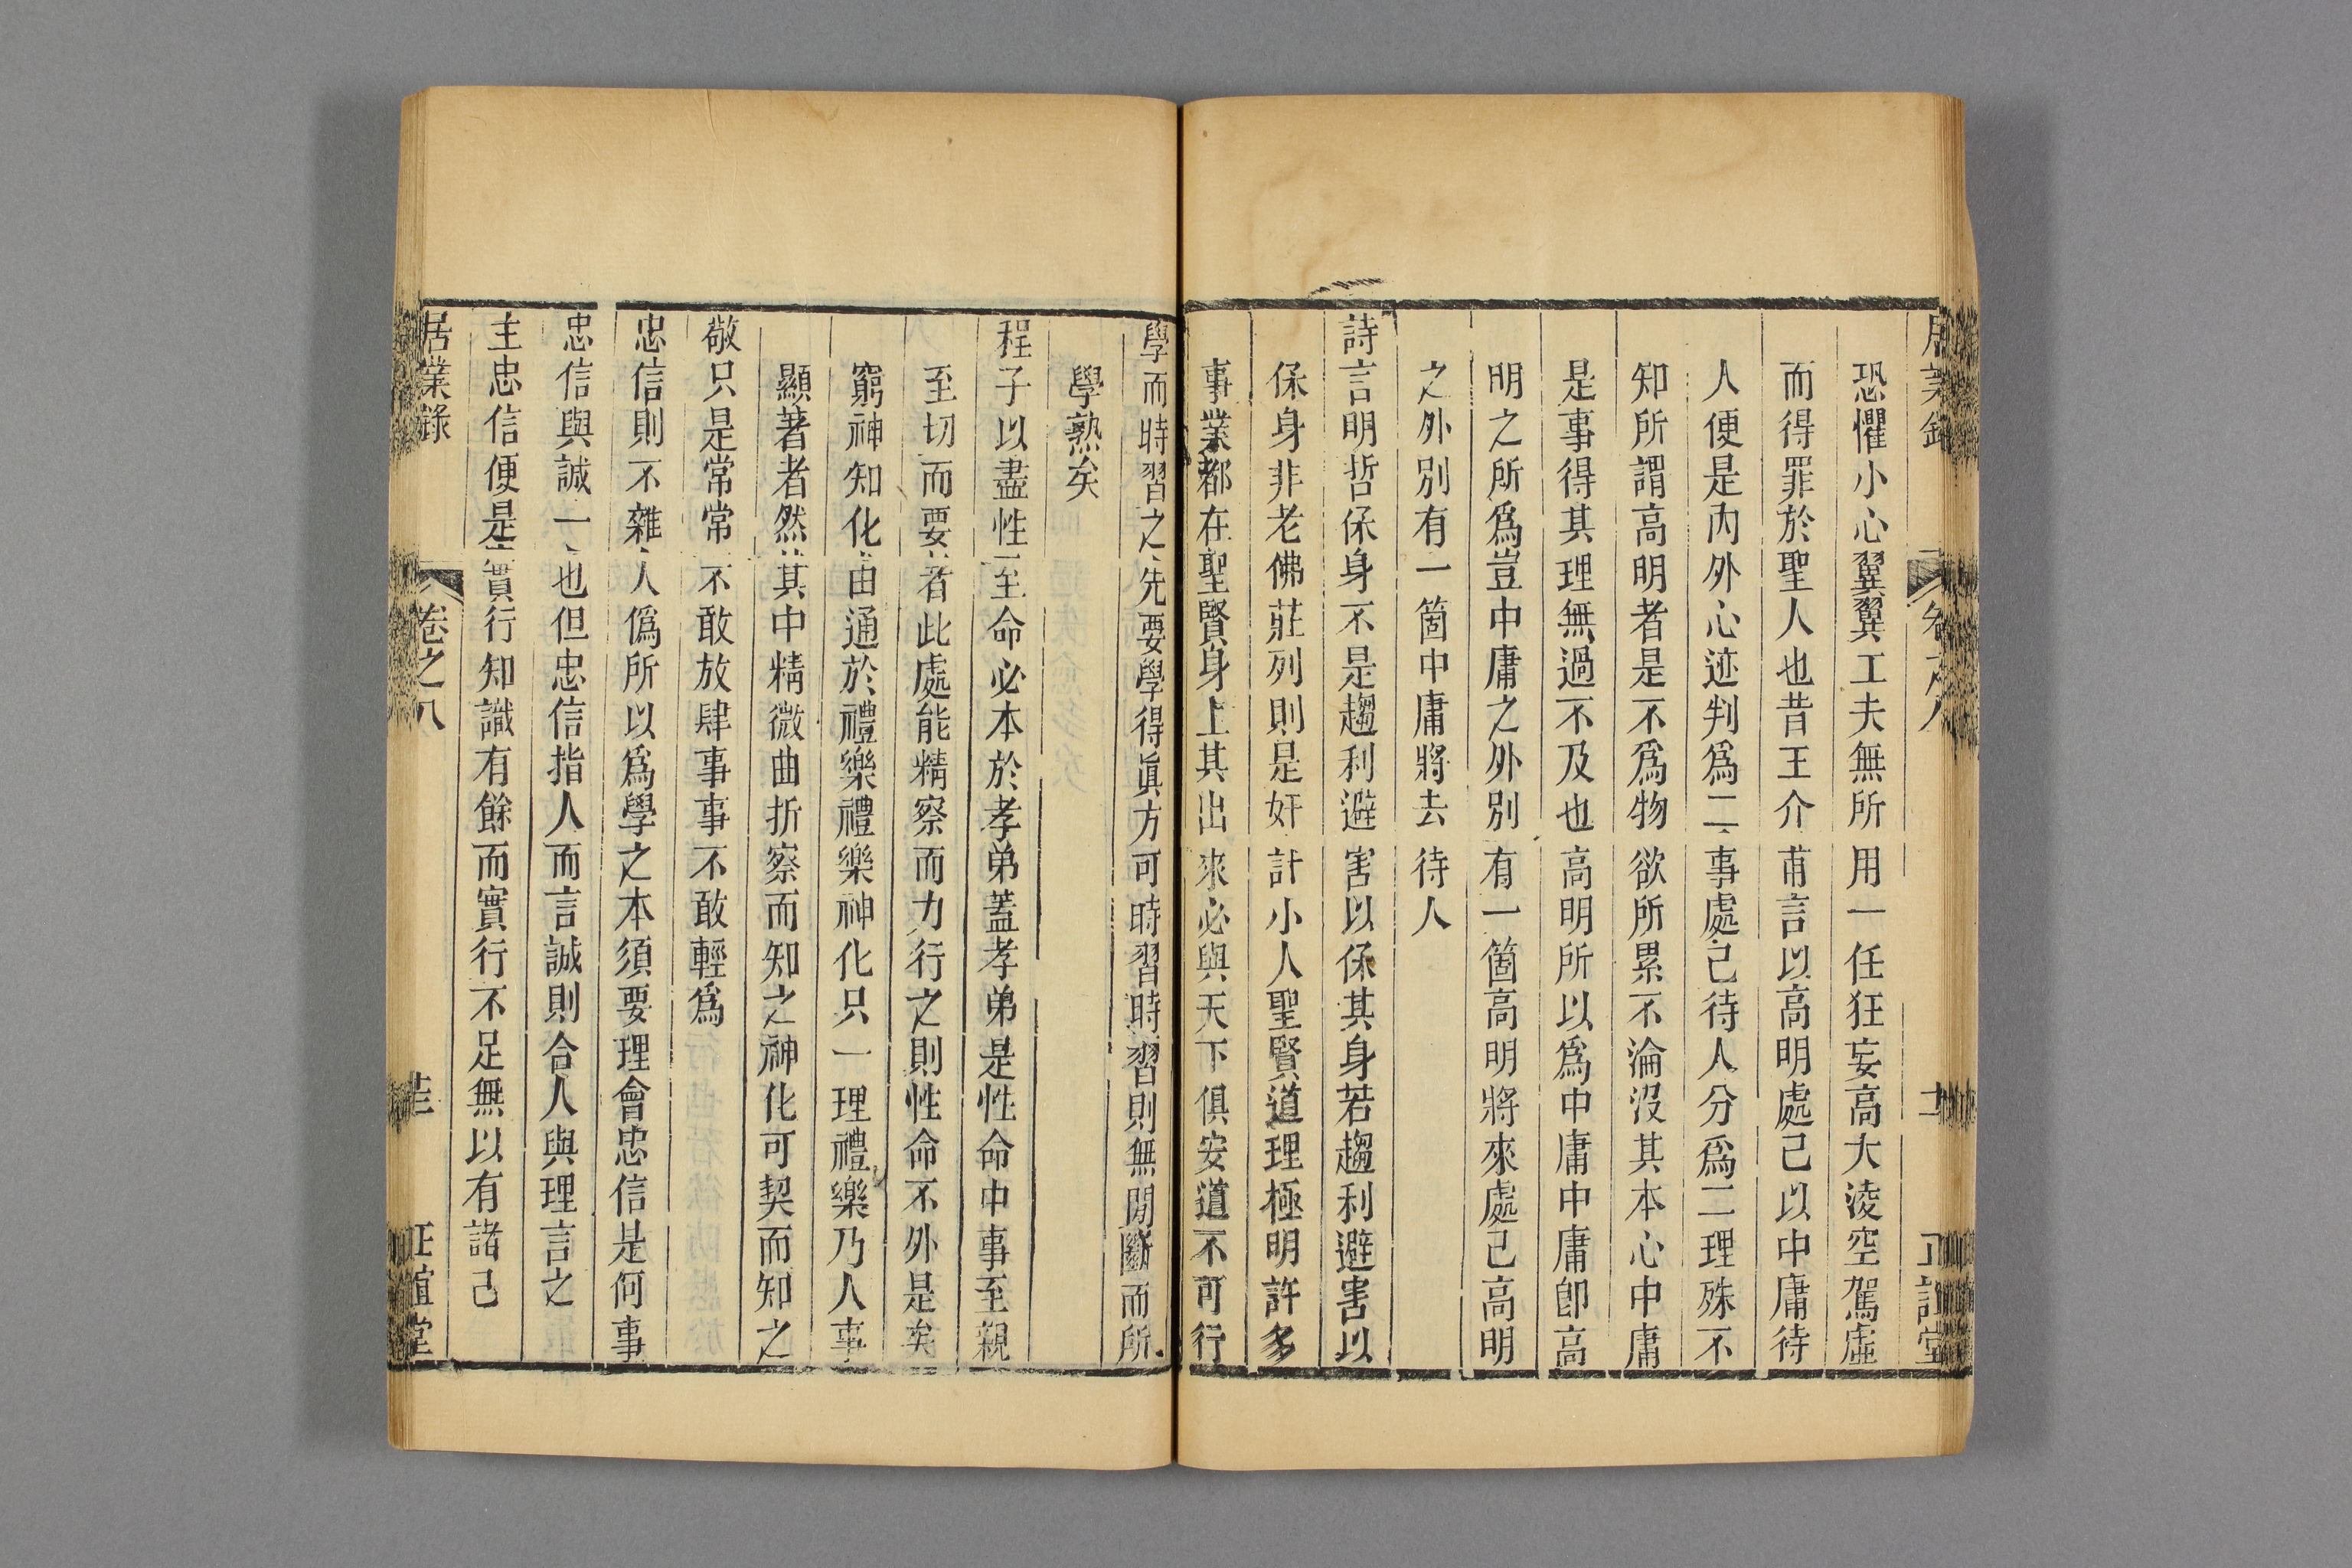 居業錄 卷之八 十 正誼堂
恐懼小心翼翼工夫無所用一任狂妄高大淩空駕虛
而得罪於聖人也昔王介甫言以高明處己以中庸待
人便是內外心迹判爲二事處己待人分爲二理殊不
知所謂高明者是不爲物欲所累不淪沒其本心中庸
是事得其理無過不及也高明所以爲中庸中庸卽高
明之所爲豈中庸之外別有一箇高明將來處己高明
之外別有一箇中庸將去待人
詩言明哲保身不是趨利避害以保其身若趨利避害以
保身非老佛莊列則是奸計小人聖賢道理極明許多
事業都在聖賢身上其出來必與天下俱安道不可行
學而時習之先要學得眞方可時習時習則無間斷而所
學熟矣
程子以盡性至命必本於孝弟蓋孝弟是性命中事至親
至切而要者此處能精察而力行之則性命不外是矣
窮神知化由通於禮樂禮樂神化只一理禮樂乃人事
顯著者然其中精微曲折察而知之神化可契而知之
敬只是常常不敢放肆事事不敢輕爲
忠信則不雜人僞所以爲學之本須要理會忠信是何事
忠信與誠一也但忠信指人而言誠則合人與理言之
主忠信便是實行知識有餘而實行不足無以有諸己
居業錄 卷之八 正誼堂